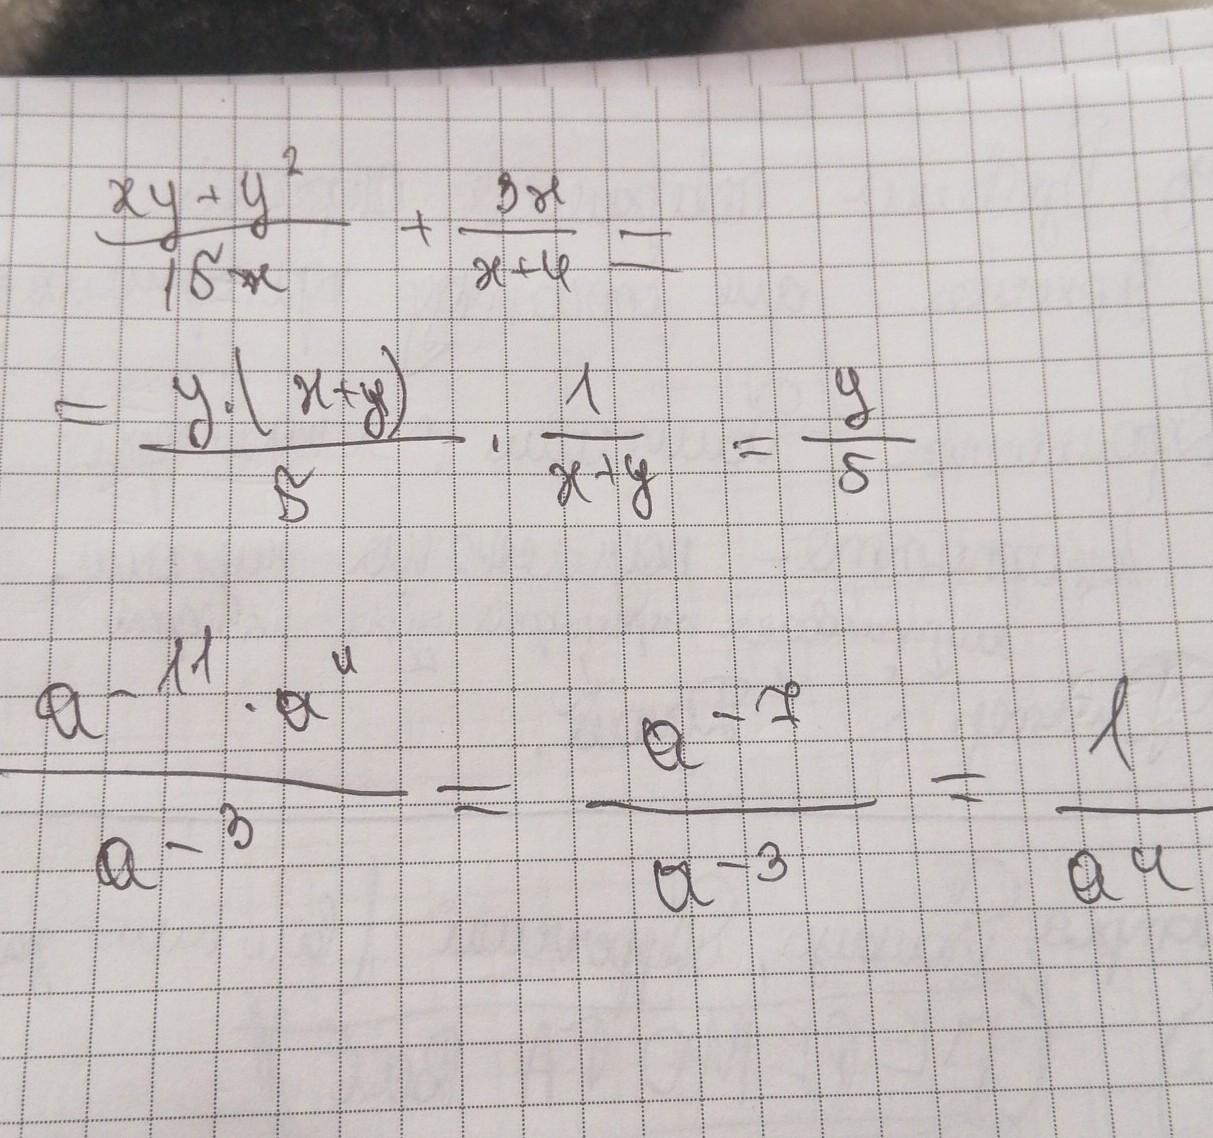 (xy + y²)/(15x) + (3x)/(x+y) =
= (y·(x+y))/5 · 1/(x+y) = y/5
(a⁻¹¹ · a⁴)/(a⁻³) = (a⁻⁷)/(a⁻³) = 1/(a⁴)